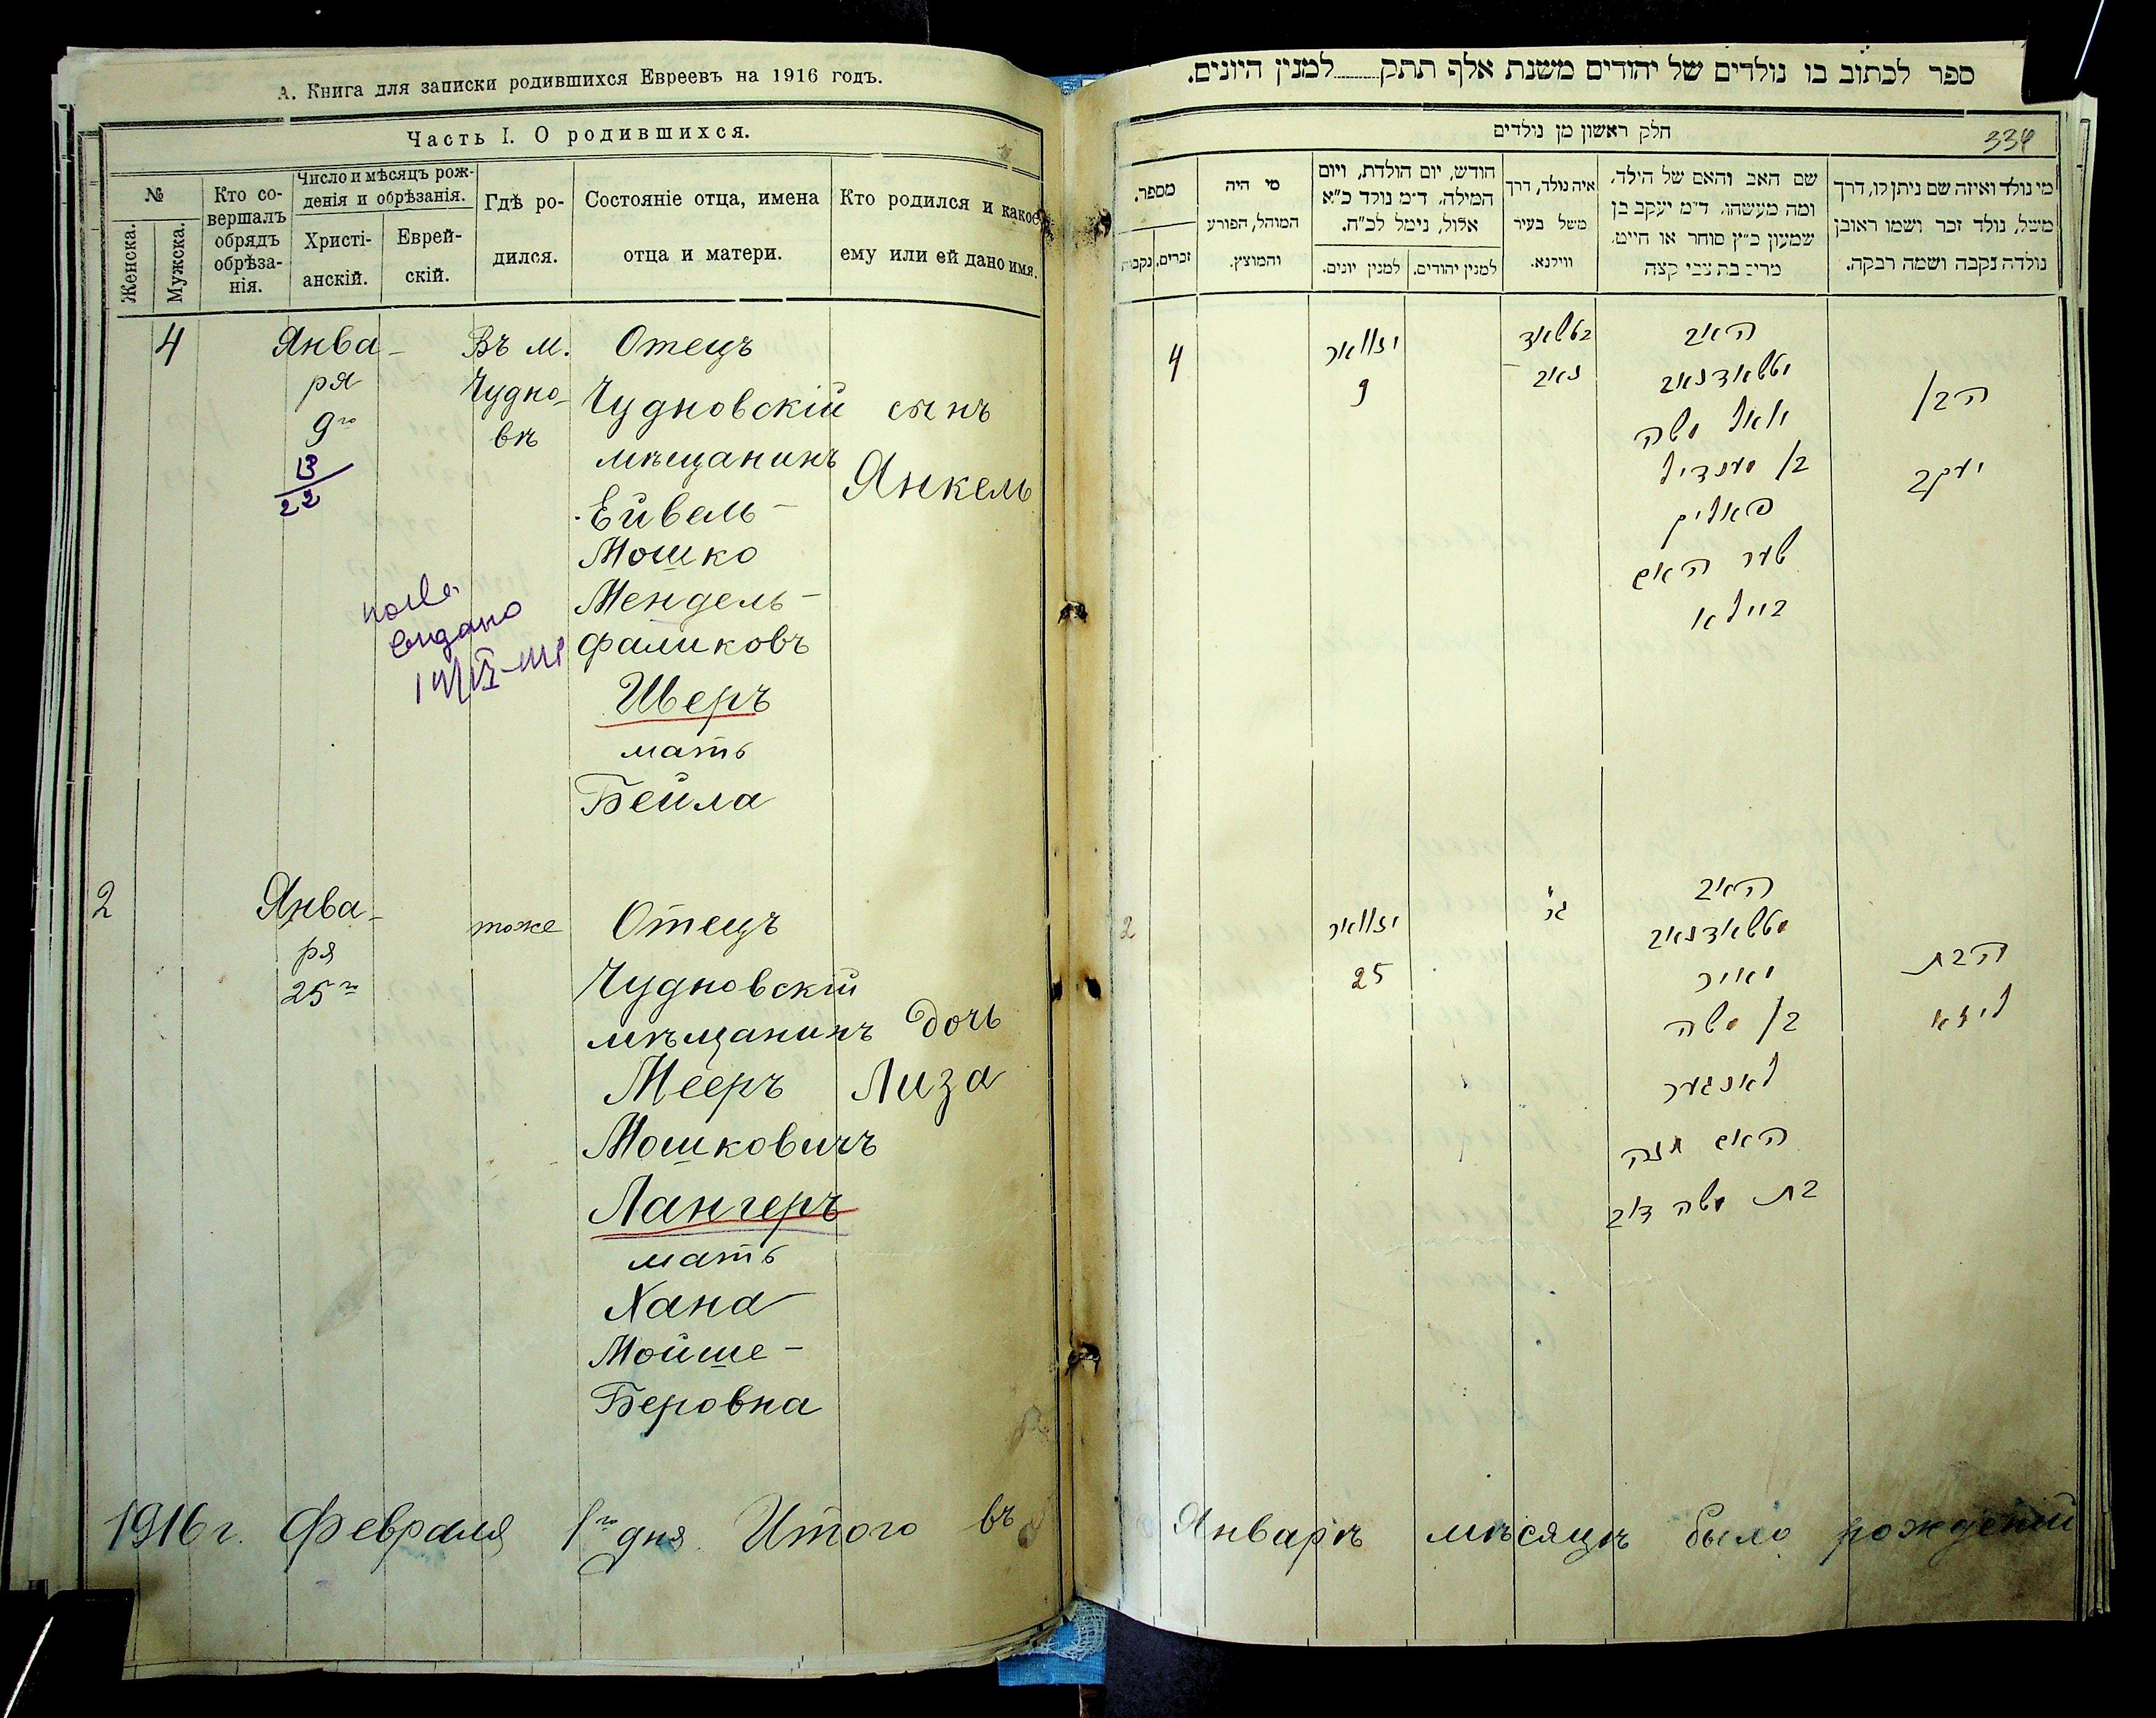 А. Книга для записки родившихся Евреевъ на 1916 годъ.
Часть I. О родившихся.
№
Женска.
Мужска.
Кто со-
вершалъ
обрядъ
обрѣза-
нія.
Число и мѣсяцъ рож-
денія и обрѣзанія.
Христі-
анскій.
Еврей-
скій.
Гдѣ ро-
дился.
Состояніе отца, имена
отца и матери.
Кто родился и какое
ему или ей дано имя.
4
Янва-
ря
9го
13
22
Въ м.
Чудно-
вѣ
Отецъ
Чудновскій
мѣщанинъ
Ейвель-
Мошко
Мендель-
Фаликовъ
Шверъ
мать
Бейла
сынъ
Янкель
выдано
2
Янва-
ря
25го
тоже
Отецъ
Чудновскій
мѣщанинъ
Мееръ
Мошковичъ
Лангеръ
мать
Хана
Мойше-
Беровна
дочь
Лиза
1916 г. Февраля 1го дня Итого въ
ספר לכתוב בו נולדים של יהודים משנת אלף תתק למנין היונים.
334
חלק ראשון מן נולדים
מי נולד ואיזה שם ניתן לו, דרך
משל, נולד זכר ושמו ראובן
נולדה נקבה ושמה רבקה.
שם האב והאם של הילד,
ומה מעשהו, ד"מ יעקב בן
שמעון כ"ץ סוחר או חייט,
מרים בת צבי קצה
איה נולד, דרך
משל בעיר
ווילנא.
חודש, יום הולדת, ויום
המילה, ד"מ נולד כ"א
אלול, נימל לכ"ח.
למנין יהודים.
למנין יונים.
מי היה
המוהל, הפורע
והמוצץ.
מספר.
זכרים.
נקבות
הבן
יעקב
האב
משה
בן מענדיל
פאליק
שער האם
ביילא
יאנואר
9
4
הבת
ליזא
האב
מאיר
בן משה
לאנגער
האם חנה
בת משה דוב
יאנואר
25
2
Январѣ мѣсяцѣ было рожденій